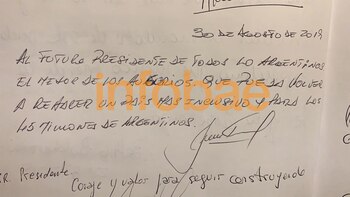 30 DE AGOSTO DE 2019
AL FUTURO PRESIDENTE DE TODOS LO ARGENTINOS
EL MEJOR DE LOS AUGURIOS. QUE PUEDA VOLVER
A REHACER UN PAÍS MAS INCLUSIVO Y PARA LOS
45 MILLONES DE ARGENTINOS.
infobae
SR. Presidente
Coraje y valor para seguir construyendo